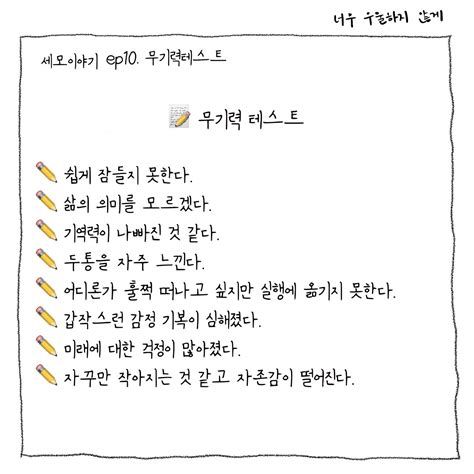 너무 우울하지 않게
세모이야기 ep10. 무기력테스트
무기력 테스트
쉽게 잠들지 못한다.
삶의 의미를 모르겠다.
기억력이 나빠진 것 같다.
두통을 자주 느낀다.
어디론가 훌쩍 떠나고 싶지만 실행에 옮기지 못한다.
갑작스런 감정 기복이 심해졌다.
미래에 대한 걱정이 많아졌다.
자꾸만 작아지는 것 같고 자존감이 떨어진다.